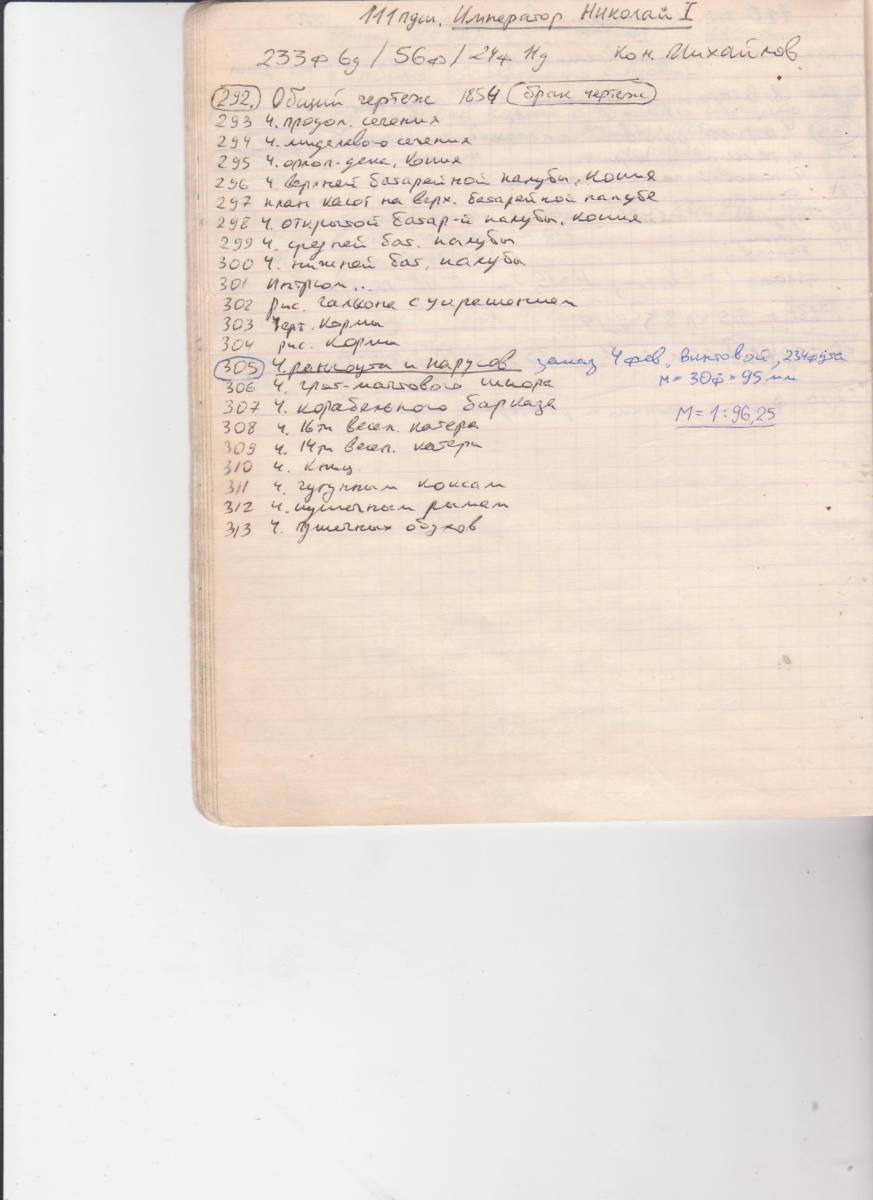 111 пуш. Император Николай I
233ф 6д / 56ф / 24ф 11д кон. Михайлов
292. Общий чертеж 1854 (брак чертеж)
293 ч. продол. сечения
294 ч. миделевого сечения
295 ч. орлоп-дека, копия
296 ч. верхней батарейной палубы, копия
297 план кают на верх. батарейной палубе
298 ч. открытой батар-й палубы, копия
299 ч. средней бат. палубы
300 ч. нижней бат. палубы
301 интрюм...
302 рис. гальюна с украшением
303 черт. кормы
304 рис. кормы
305 ч. рангоута и парусов заказ 4 фев, винтовой, 234 фута
306 ч. грот-мачтового шпора м = 30ф = 95 мм
307 ч. корабельного барказа
308 ч. 16ти весел. катера М = 1:96,25
309 ч. 14ти весел. катера
310 ч. книц
311 ч. чугунным коксам
312 ч. пушечным рымам
313 ч. пушечных обухов